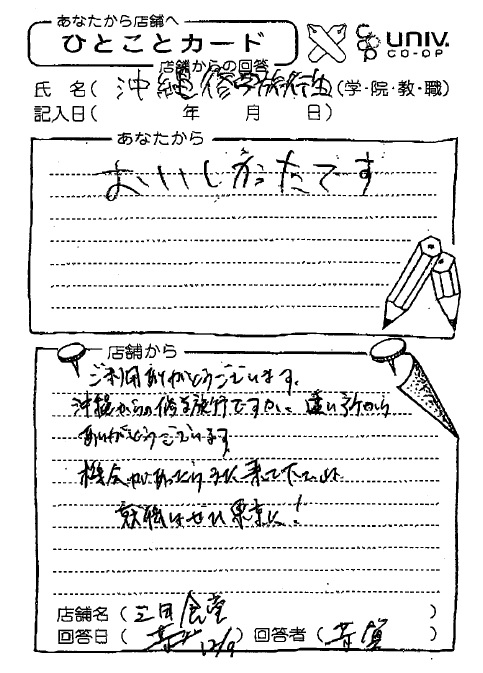 あなたから店舗へ
ひとことカード
店舗からの回答
UNIV.
CO-OP
氏 名( 沖縄修学旅行生 (学・院・教・職)
記入日( 年 月 日)
あなたから
おいしかったです
店舗から
ご利用ありがとうございます。
沖縄からの修学旅行ですか。遠い所から
ありがとうございます。
機会があったらまた来て下さいね
就職はぜひ東京に!
店舗名( 三田食堂 )
回答日( 12/9 ) 回答者( )